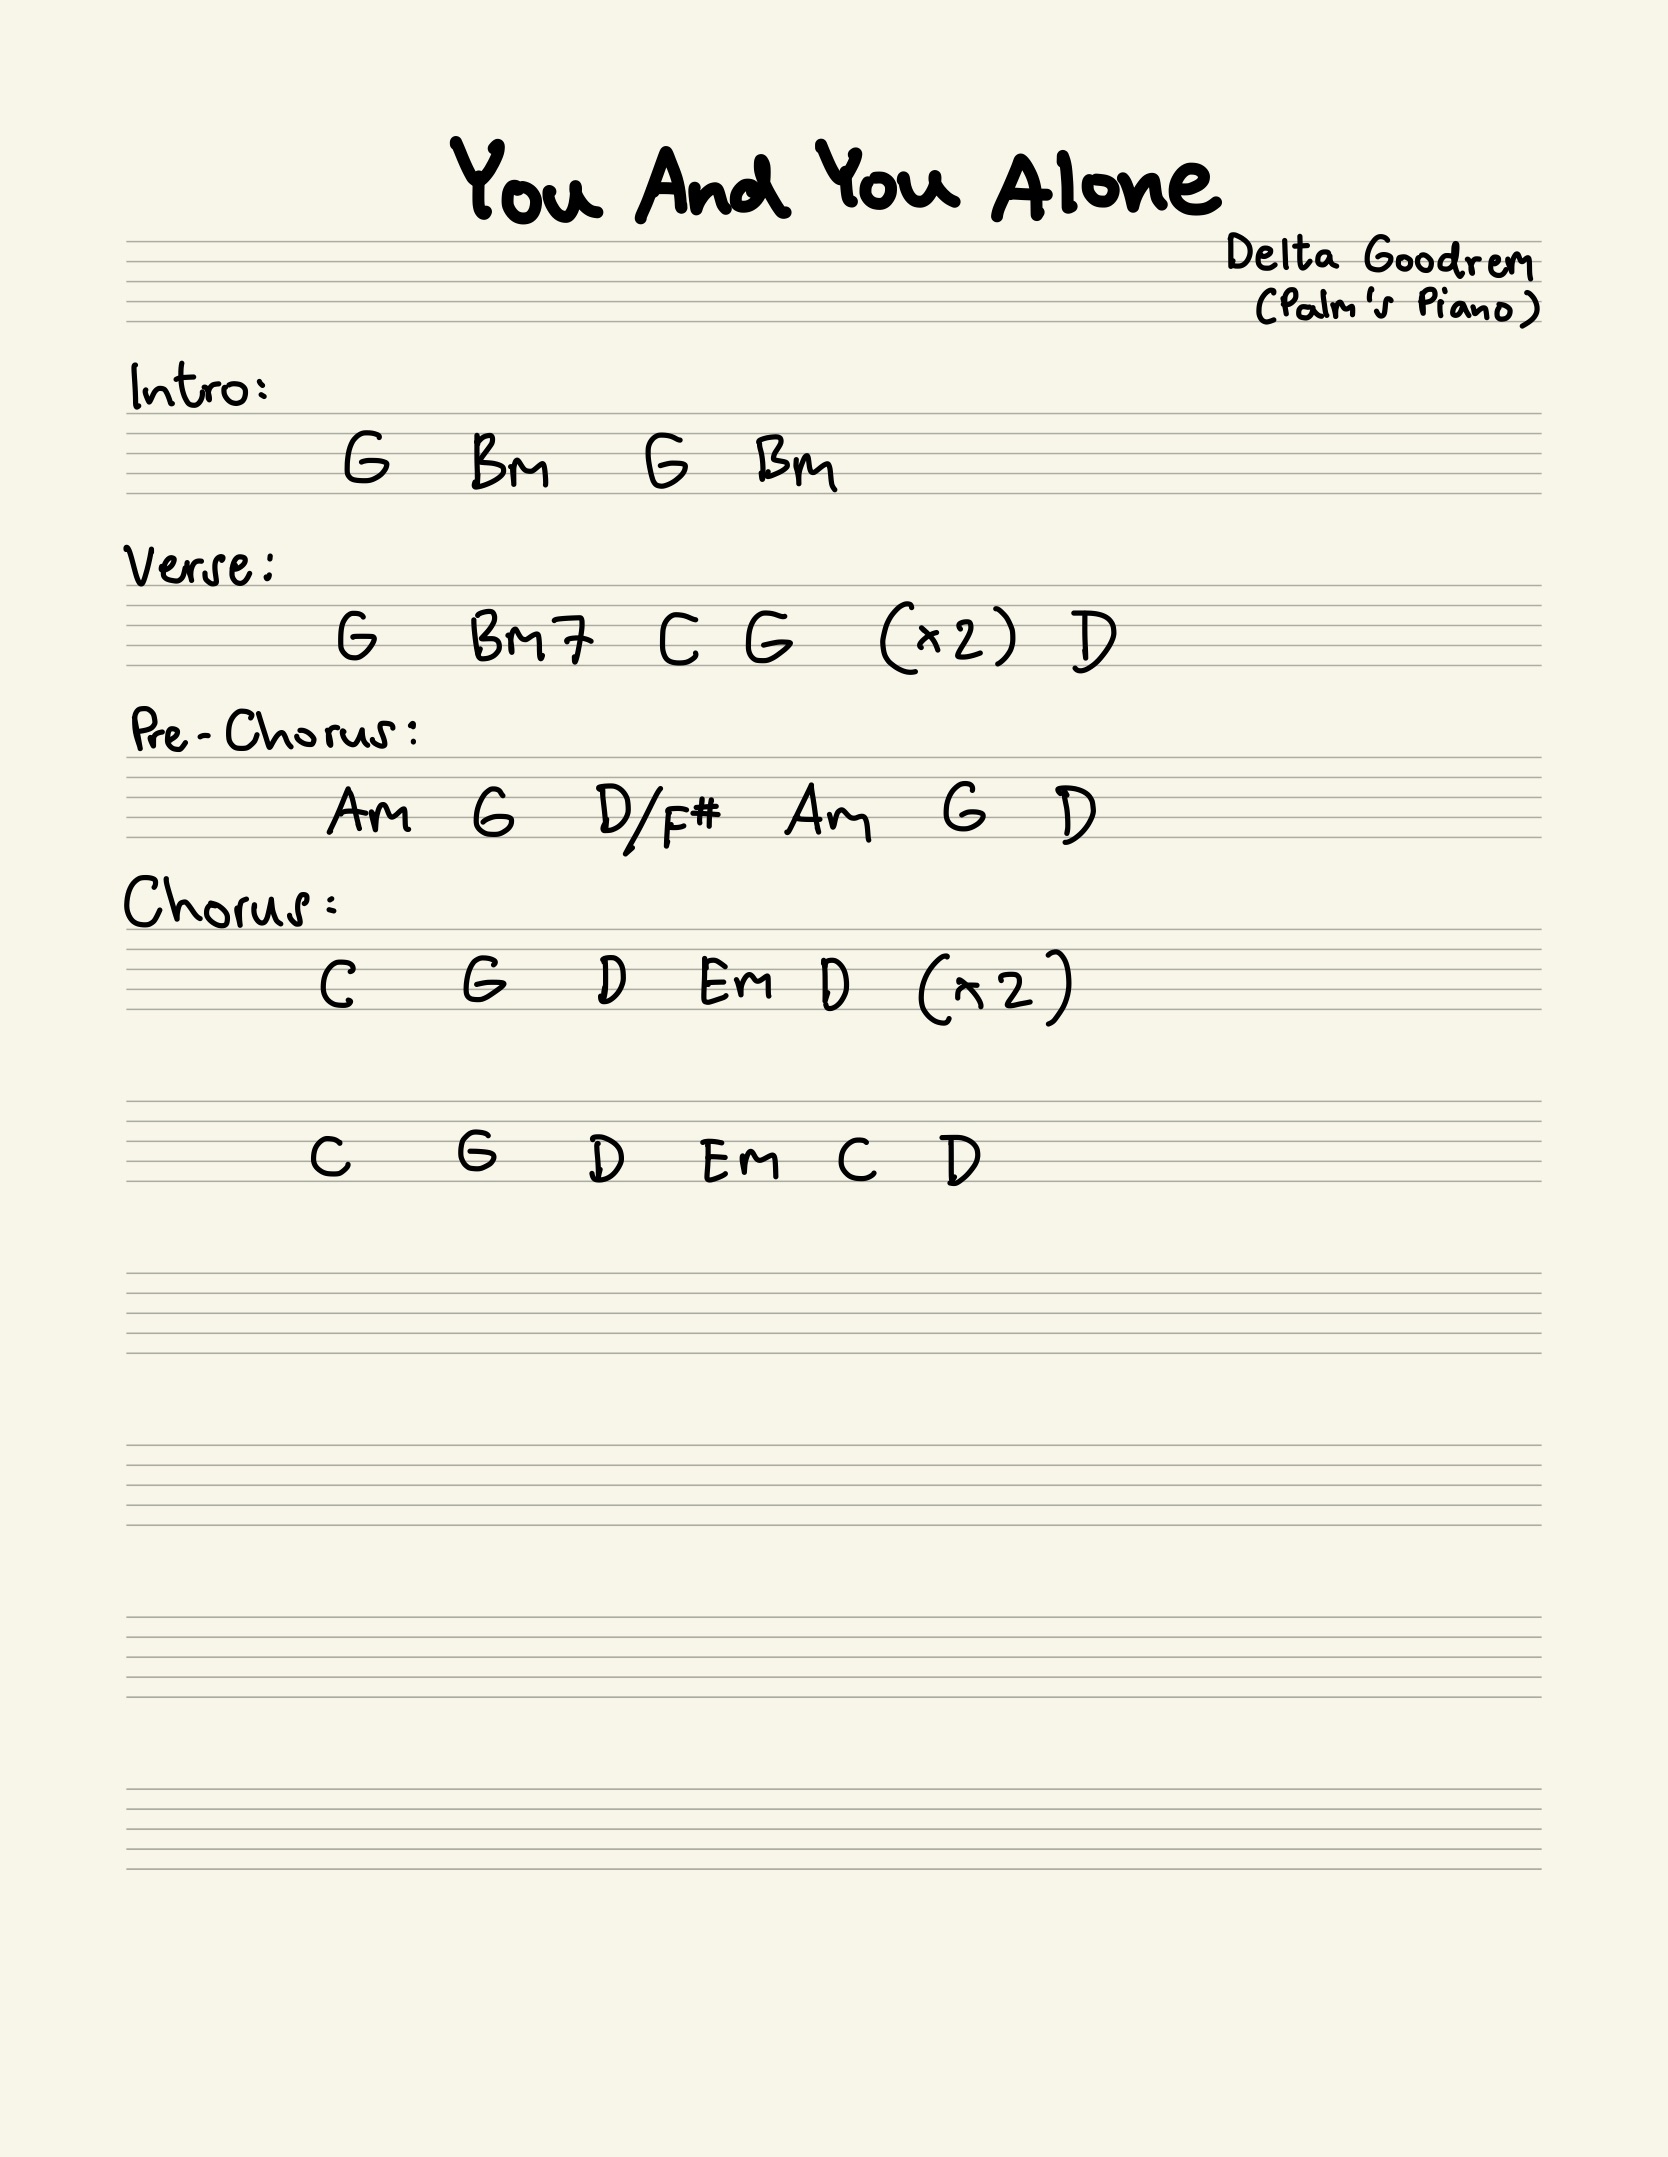 You And You Alone
Delta Goodrem
(Palm's Piano)
Intro:
G Bm G Bm
Verse:
G Bm7 C G (x2) D
Pre-Chorus:
Am G D/F# Am G D
Chorus:
C G D Em D (x2)
C G D Em C D